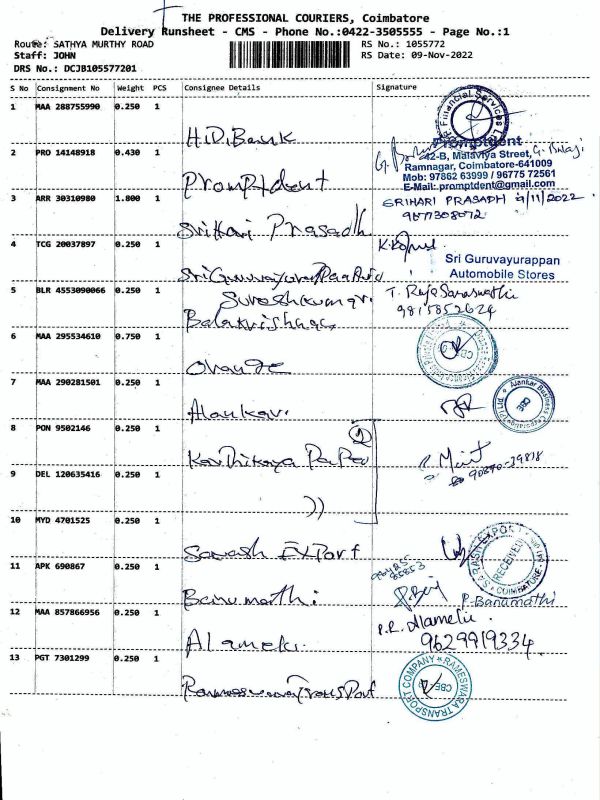 THE PROFESSIONAL COURIERS, Coimbatore
Delivery Runsheet - CMS - Phone No.:0422-3505555 - Page No.:1
Route: SATHYA MURTHY ROAD RS No.: 1055772
Staff: JOHN RS Date: 09-Nov-2022
DRS No.: DCJB105577201
S No Consignment No Weight PCS Consignee Details Signature
1 MAA 288755990 0.250 1
H.D. Bank
Financial Services
2 PRO 14148918 0.430 1
Promptdent
Promptdent
42-B, Malaviya Street, G. Balaji
Ramnagar, Coimbatore-641009
Mob: 97862 63999 / 96775 72561
E-Mail: promptdent@gmail.com
3 ARR 30310980 1.800 1
Srihari Prasadh
SRIHARI PRASADH 9/11/2022
9677308072
4 TCG 20037897 0.250 1
Sri Guruvayurappan
Automobile Stores
5 BLR 4553090066 0.250 1
Balakrishnan
T. Raja Saraswathi
9815852624
6 MAA 295534610 0.750 1
Orange
7 MAA 290281501 0.250 1
Alankar.
Alankar Business
8 PON 9502146 0.250 1
Karthikeya Paper
2
9 DEL 120635416 0.250 1
))
10 MYD 4701525 0.250 1
Sarash Export
SARASH EXPORT
RECEIVED
COIMBATORE
11 APK 690867 0.250 1
Banumathi
P. Banumathi
12 MAA 857866956 0.250 1
Alamelu.
P.R. Alamelu
9629919334
13 PGT 7301299 0.250 1
Rameswara Transport
RAMESWARA TRANSPORT COMPANY
CBE